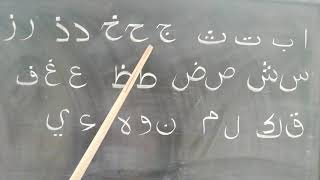 ا ب ت ث ج ح خ د ذ ر ز
س ش ص ض ط ظ ع غ ف
ق ك ل م ن و ه ء ي